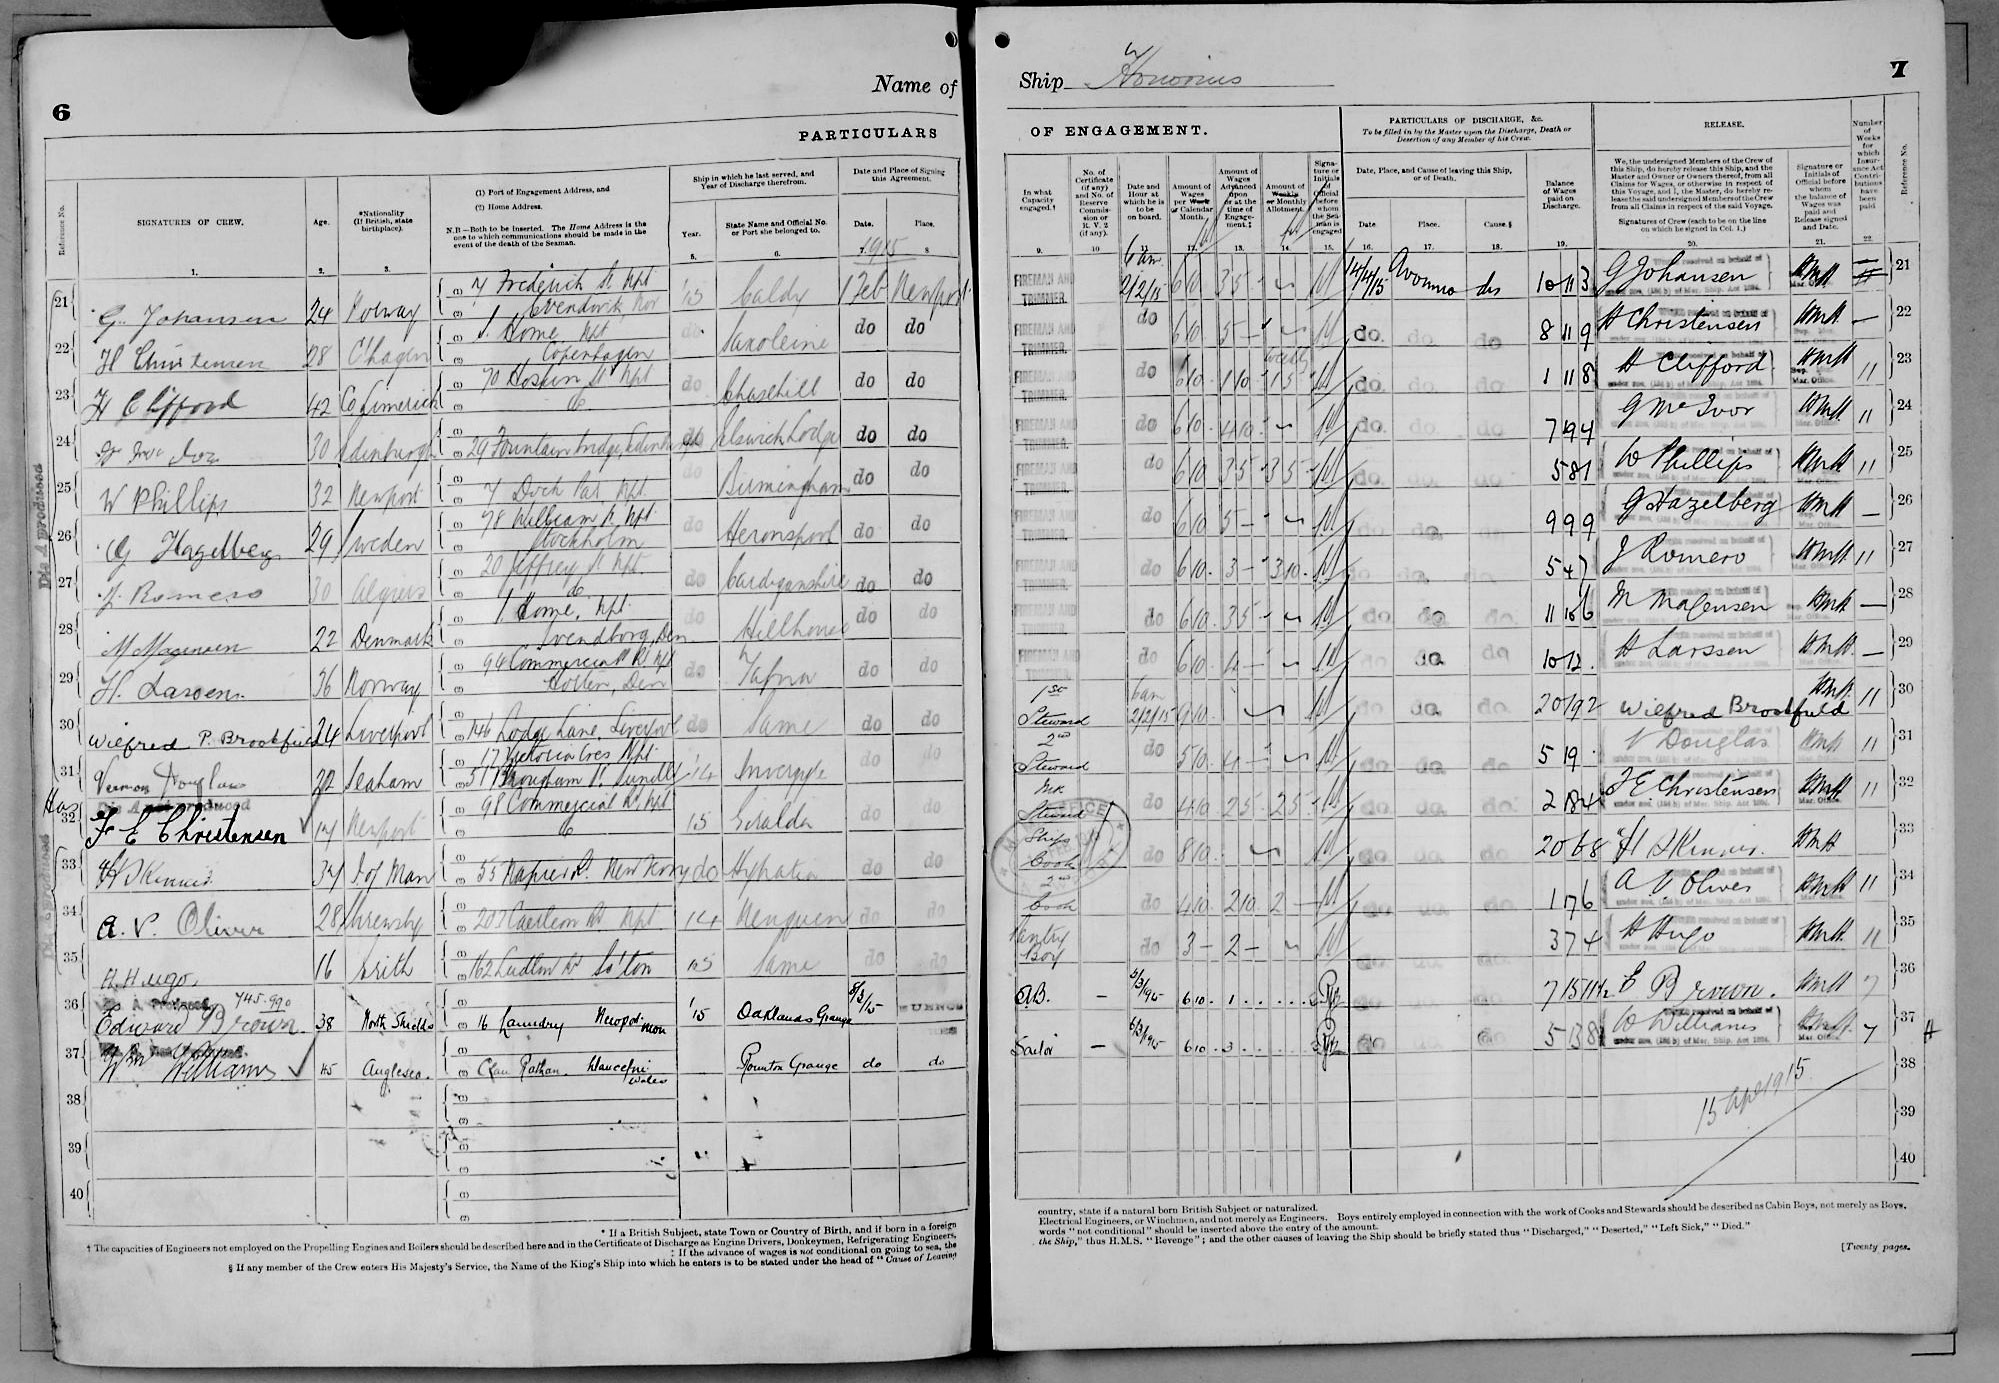 6
Name of
PARTICULARS
Reference No.
SIGNATURES OF CREW.
Age.
*Nationality
(If British, state
birthplace).
(1) Port of Engagement Address, and
(2) Home Address.
N.B.—Both to be inserted. The Home Address is the
one to which communications should be made in the
event of the death of the Seaman.
Ship in which he last served, and
Year of Discharge therefrom.
Year.
State Name and Official No.
or Port she belonged to.
Date and Place of Signing
this Agreement.
Date.
Place.
1. 2. 3. 4 5. 6. 7. 1915 8
21 G. Johansen 24 Norway 7 Frederick St Npt '15 Caldy 1 Feb Newport
22 H Christensen 28 C'hagen 1 Home Npt Copenhagen do Saxoleine do do
23 H Clifford 42 Co Limerick 70 Hoskin St Npt do Chasehill do do
24 30 Edinburgh 29 Fountainbridge, Edinburgh Elswick Lodge do do
25 W Phillips 32 Newport 7 Dock Npt do Birmingham do do
26 G Hagelberg 29 Sweden 78 William St Npt Stockholm do Heronspool do do
27 J. Romero 30 Algiers 20 Jeffrey St Npt do Cardiganshire do do
28 M Magensen 22 Denmark 1 Home, Npt Svendborg, Den do Hillhouse do do
29 H. Larsen 36 Norway 94 Commercial Rd Npt do Tafna do do
30 Wilfred P. Brookfield 24 Liverpool 146 Lodge Lane, Liverpool do Same do do
31 Vernon Douglas 22 Seaham 17 Victoria Cres Npt '14 do do
32 F E Christensen 17 Newport 98 Commercial Rd Npt 15 Geralda do do
33 H Skinnis 34 I of Man 55 Napier St. do Hypatia do do
34 A. V. Oliver 28 207 Caerleon Rd Npt 14 Neuquen do do
35 H. Hugo. 16 Erith 162 Ludlow Rd So'ton 15 Same do do
36 745.990 Edward Brown 38 North Shields 16 Laundry Newport Mon '15 Oaklands Grange 5/3/15
37 Wm Williams 45 Anglesea. Wales Rounton Grange do do
38
39
40
* If a British Subject, state Town or Country of Birth, and if born in a foreign
† The capacities of Engineers not employed on the Propelling Engines and Boilers should be described here and in the Certificate of Discharge as Engine Drivers, Donkeymen, Refrigerating Engineers,
‡ If the advance of wages is not conditional on going to sea, the
§ If any member of the Crew enters His Majesty's Service, the Name of the King's Ship into which he enters is to be stated under the head of "Cause of Leaving
Ship Honorius
7
OF ENGAGEMENT.
PARTICULARS OF DISCHARGE, &c.
To be filled in by the Master upon the Discharge, Death or
Desertion of any Member of his Crew.
RELEASE.
Number
of
Weeks
for
which
Insur-
ance Act
Contri-
butions
have
been
paid
Reference No.
In what
Capacity
engaged.†
No. of
Certificate
(if any)
and No. of
Reserve
Commis-
sion or
R. V. 2
(if any).
Date and
Hour at
which he is
to be
on board.
Amount of
Wages
per Week
or Calendar
Month.
Amount of
Wages
Advanced
upon
or at the
time of
Engage-
ment.‡
Amount of
Weekly
or Monthly
Allotment.
Signa-
ture or
Initials
of
Official
before
whom
the Sea-
man is
engaged
Date, Place, and Cause of leaving this Ship,
or of Death.
Date
Place.
Cause.§
Balance
of Wages
paid on
Discharge.
We, the undersigned Members of the Crew of
this Ship, do hereby release this Ship, and the
Master and Owner or Owners thereof, from all
Claims for Wages, or otherwise in respect of
this Voyage, and I, the Master, do hereby re-
lease the said undersigned Members of the Crew
from all Claims in respect of the said Voyage.
Signatures of Crew (each to be on the line
on which he signed in Col. 1.)
Signature or
Initials of
Official before
whom
the balance of
Wages was
paid and
Release signed
and Date.
9. 10 11 12. 13. 14. 15. 16. 17. 18. 19. 20. 21. 22.
FIREMAN AND TRIMMER. 6 am 2/2/15 6 10 3 5 14/4/15 Avonmo dis 10 11 3 G Johansen 21
FIREMAN AND TRIMMER. do 6 10 5 — do. do do 8 11 9 H Christensen — 22
FIREMAN AND TRIMMER. do 6 10 1 10 weekly 15 do. do do 1 11 8 H Clifford 11 23
FIREMAN AND TRIMMER. do 6 10 4 10 do. do do 7 9 4 G McIvor 11 24
FIREMAN AND TRIMMER. do 6 10 3 5 3 5 do do do 5 8 1 W Phillips 11 25
FIREMAN AND TRIMMER. do 6 10 5 — do do. do 9 9 9 G Hazelberg — 26
FIREMAN AND TRIMMER. do 6 10 3 — 3 10 do do. do 5 4 7 J Romero 11 27
FIREMAN AND TRIMMER. do 6 10 3 5 do do do. 11 16 6 M Magensen — 28
FIREMAN AND TRIMMER. do 6 10 4 — do do. do 10 12 H Larssen — 29
1st Steward 6am 2/2/15 9 10 do do. do 20 19 2 Wilfred Brookfield 11 30
2nd Steward do 5 10 4 — do do. do. 5 19 V Douglas 11 31
Steward do 4 10 2 5 2 5 do do. do. 2 18 4 F E Christensen 11 32
Ships Cook do 8 10 do do. do. 20 6 8 H Skinnis. 33
2nd Cook do 4 10 2 10 2 — do do. do. 1 17 6 A V Oliver 11 34
Pantry Boy do 3 — 2 — do do. do. 3 7 4 H Hugo 11 35
A.B. — 5/3/1915 6 10 1 do do. do 7 15 11½ E Brown. 7 36
Sailor — 6/3/1915 6 10 3 do do 5 13 8 W Williams 7 37
38
15 Apl 1915
39
40
country, state if a natural born British Subject or naturalized.
Electrical Engineers, or Winchmen, and not merely as Engineers. Boys entirely employed in connection with the work of Cooks and Stewards should be described as Cabin Boys, not merely as Boys.
words "not conditional" should be inserted above the entry of the amount.
the Ship," thus H.M.S. "Revenge"; and the other causes of leaving the Ship should be briefly stated thus "Discharged," "Deserted," "Left Sick," "Died."
[Twenty pages.